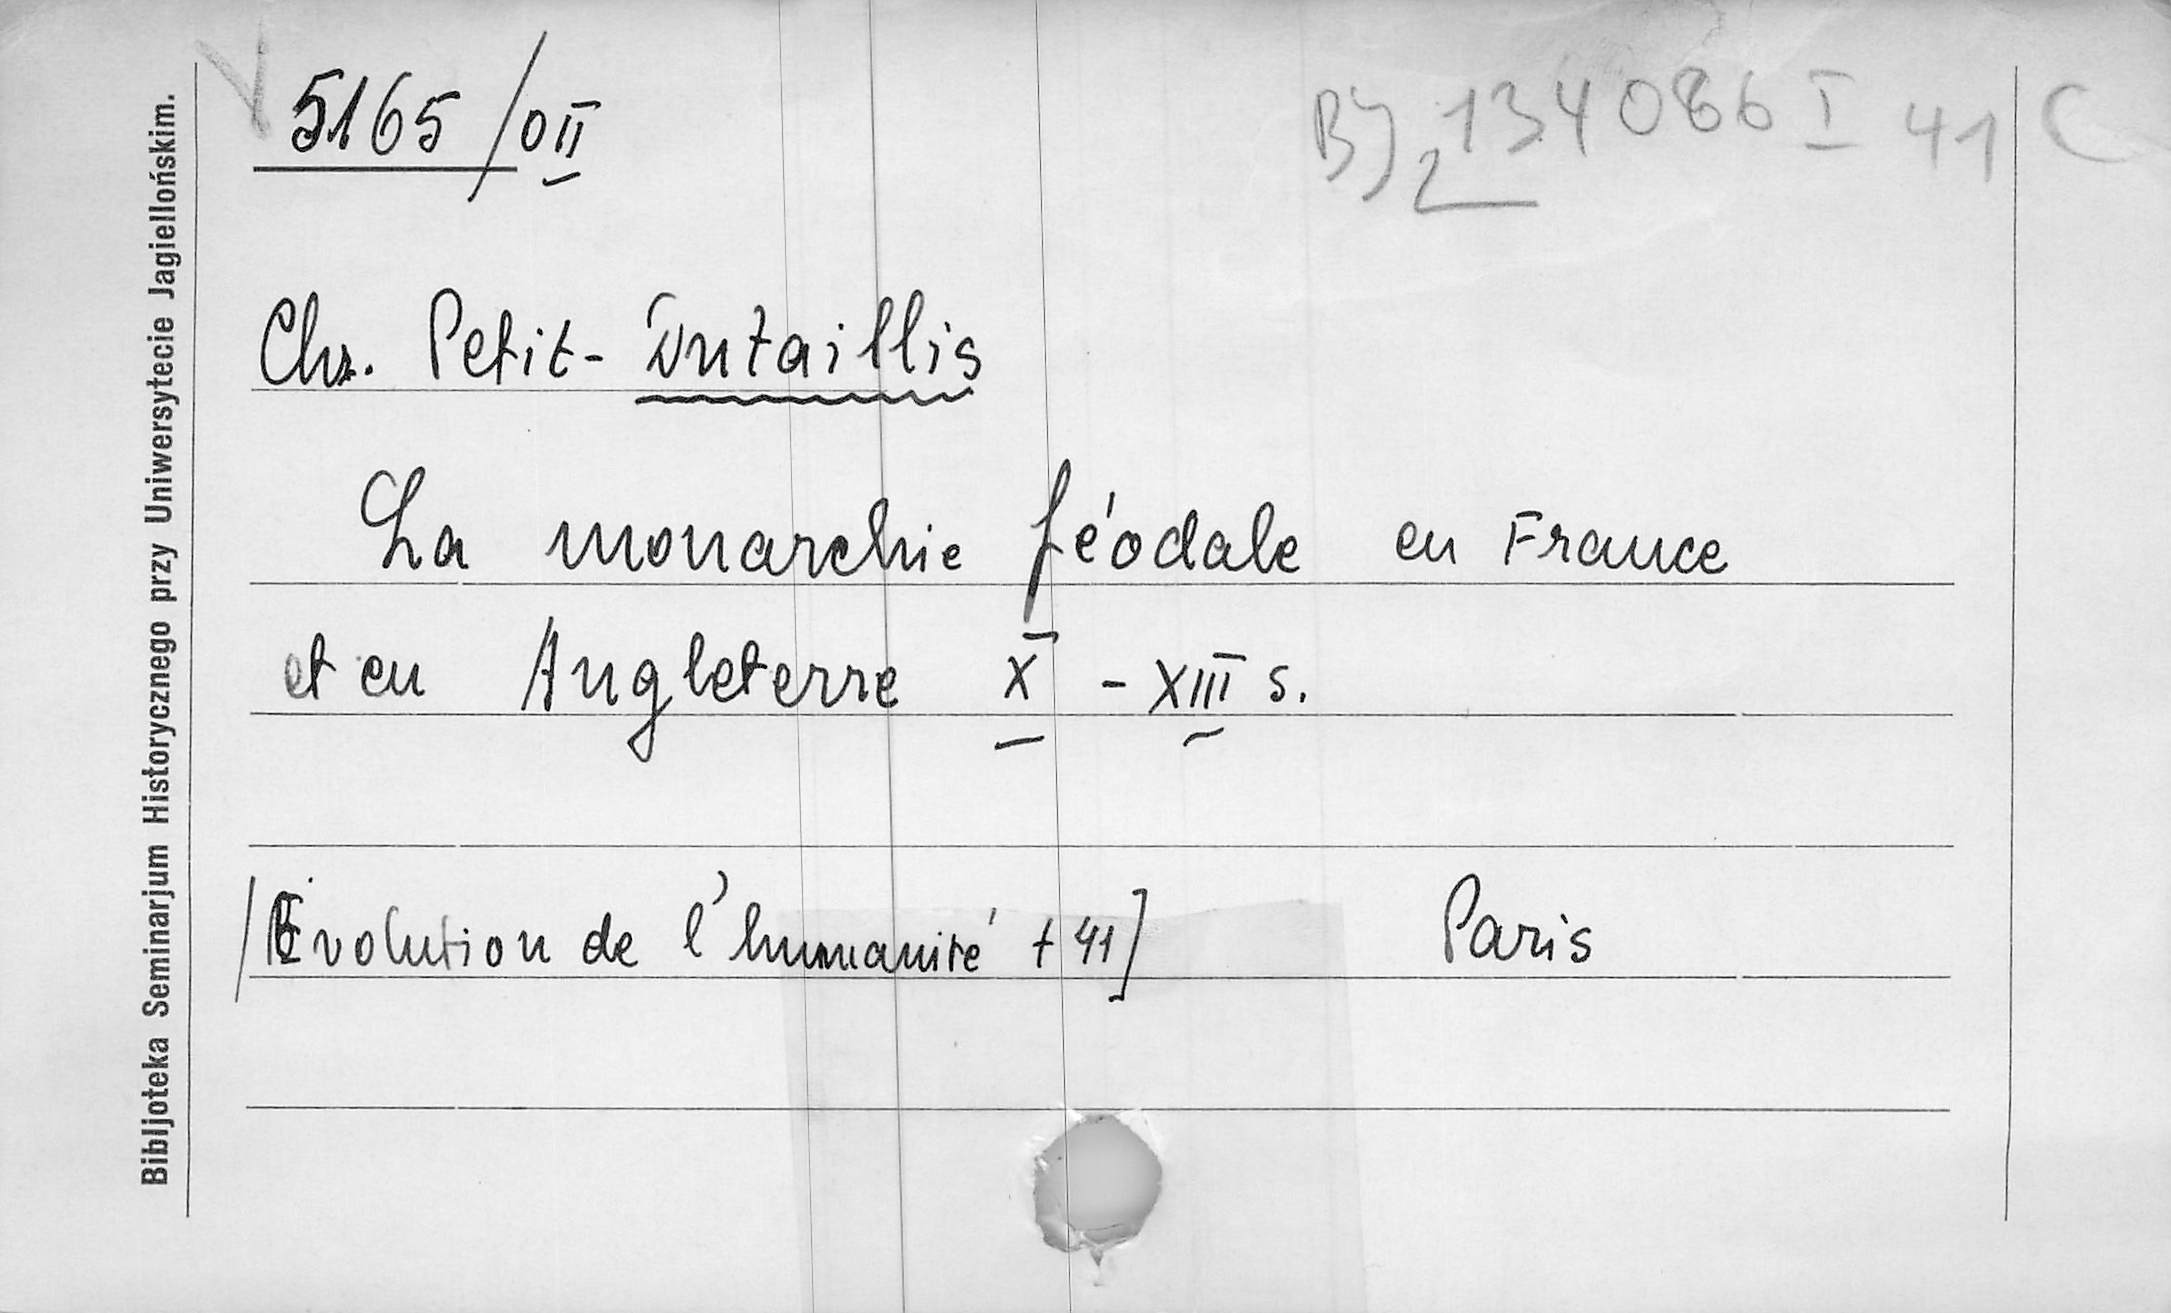 V 5165/0II
BJ 134086 I 41 C
2
Chr. Petit-Dutaillis
La monarchie féodale en France
et en Angleterre X - XIII s.
[Evolution de l'humanité t 41] Paris
Bibljoteka Seminarjum Historycznego przy Uniwersytecie Jagiellońskim.